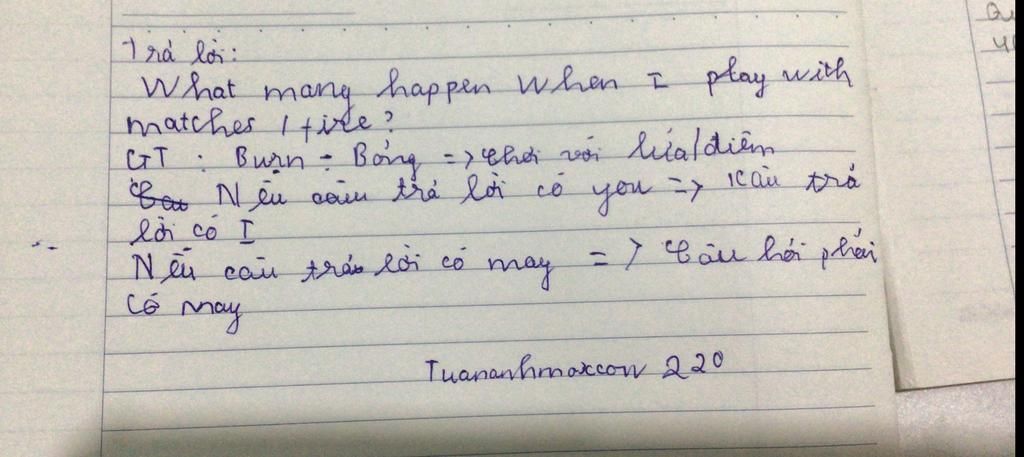 Trả lời:
What mang happen when I play with
matches / fire?
GT : Burn - Bỏng => chơi với lửa/diêm
Nếu câu trả lời có you => câu trả
lời có I
Nếu câu trả lời có may => Câu hỏi phải
có may
Tuananhmaxcow 220